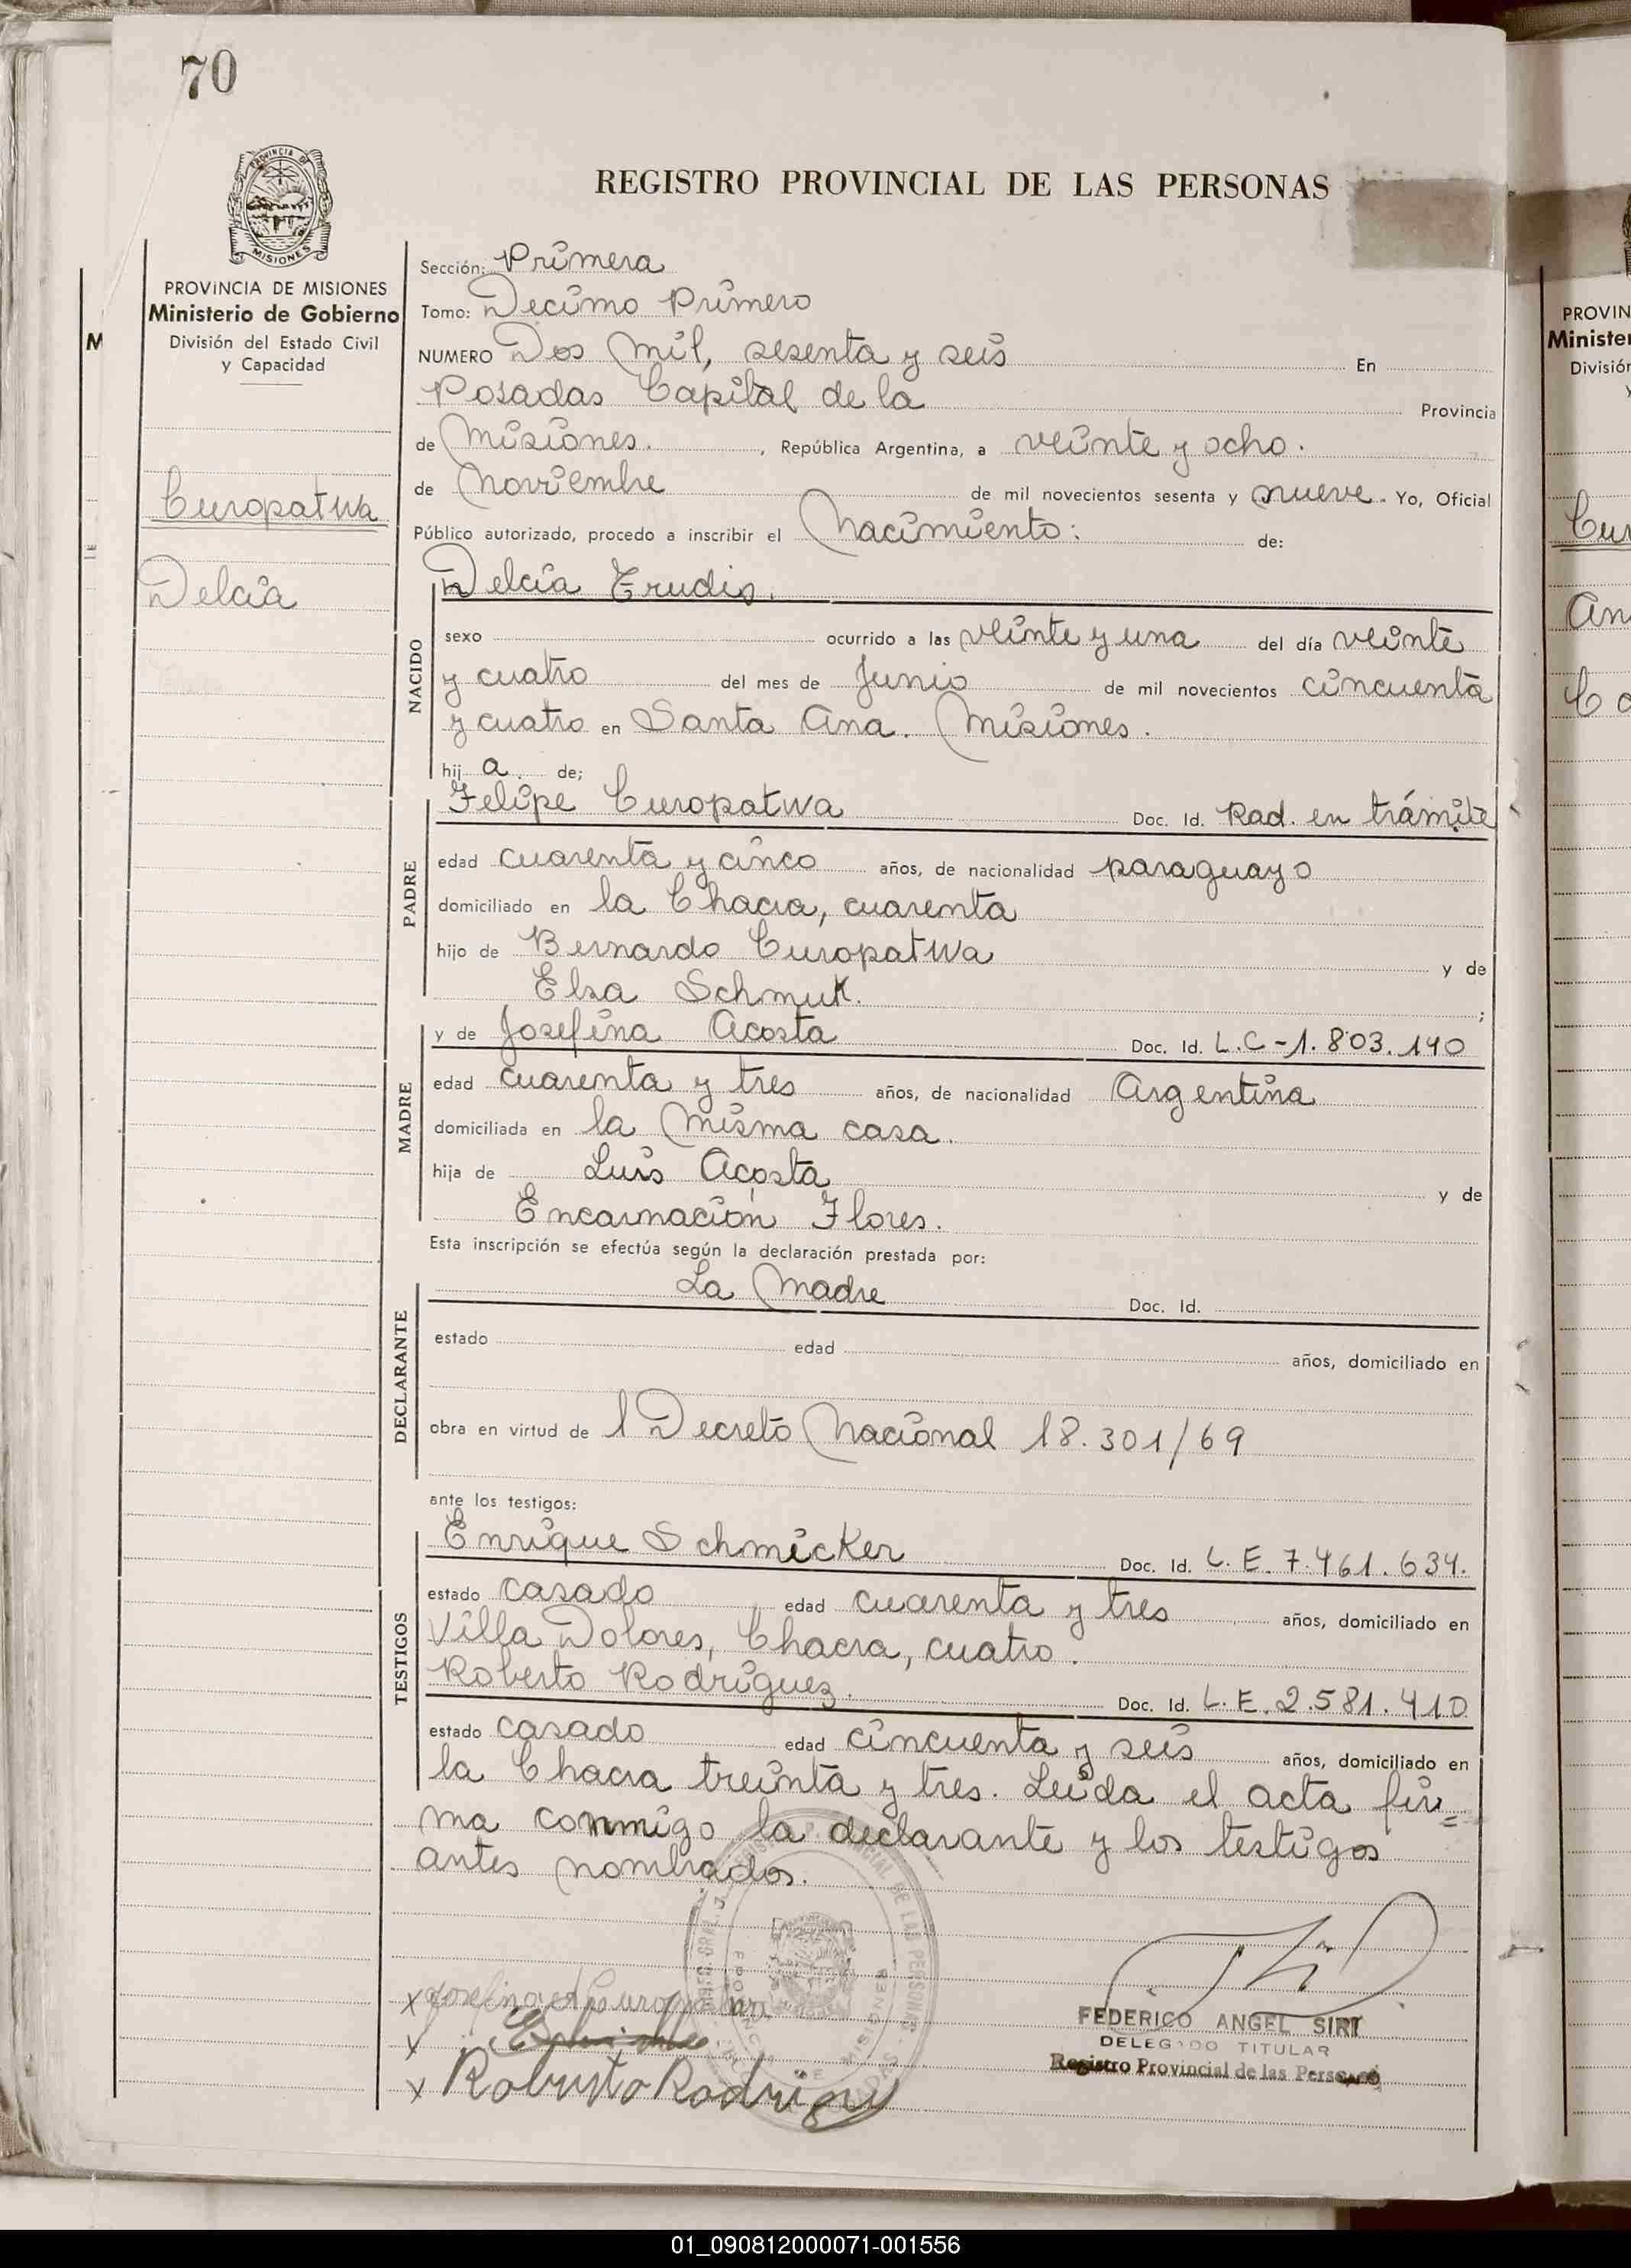 70
PROVINCIA DE
MISIONES
REGISTRO PROVINCIAL DE LAS PERSONAS
PROVINCIA DE MISIONES
Ministerio de Gobierno
División del Estado Civil
y Capacidad
Curopatwa
Delcia
Sección: Primera
Tomo: Decimo Primero
NUMERO Dos Mil, sesenta y seis En
Posadas Capital de la Provincia
de Misiones. , República Argentina, a veinte y ocho.
de Noviembre de mil novecientos sesenta y nueve. Yo, Oficial
Público autorizado, procedo a inscribir el Nacimiento: de:
NACIDO
Delcia Erudis.
sexo ocurrido a las veinte y una del día veinte
y cuatro del mes de Junio de mil novecientos cincuenta
y cuatro en Santa Ana. Misiones.
hij a. de;
PADRE
Felipe Curopatwa Doc. Id. Rad. en trámite
edad cuarenta y cinco años, de nacionalidad paraguayo
domiciliado en la Chacra, cuarenta
hijo de Bernardo Curopatwa y de
Elsa Schmuk. ;
MADRE
y de Josefina Acosta Doc. Id. L.C-1.803.140
edad cuarenta y tres años, de nacionalidad Argentina
domiciliada en la misma casa.
hija de Luis Acosta y de
Encarnación Flores.
Esta inscripción se efectúa según la declaración prestada por:
DECLARANTE
La Madre Doc. Id.
estado edad años, domiciliado en
obra en virtud de l Decreto Nacional 18.301/69
ante los testigos:
TESTIGOS
Enrique Schmicker Doc. Id. L.E.7.461.634.
estado casado edad cuarenta y tres años, domiciliado en
Villa Dolores, Chacra, cuatro.
Roberto Rodríguez. Doc. Id. L.E.2.581.410
estado casado edad cincuenta y seis años, domiciliado en
la Chacra treinta y tres. Leida el acta fir=
ma conmigo la declarante y los testigos
antes nombrados.
x Josefina A Curopatwa
x
x Roberto Rodriguez
FEDERICO ANGEL SIRI
DELEGADO TITULAR
Registro Provincial de las Personas
PROVIN
Minister
División
Cur
An
01_090812000071-001556